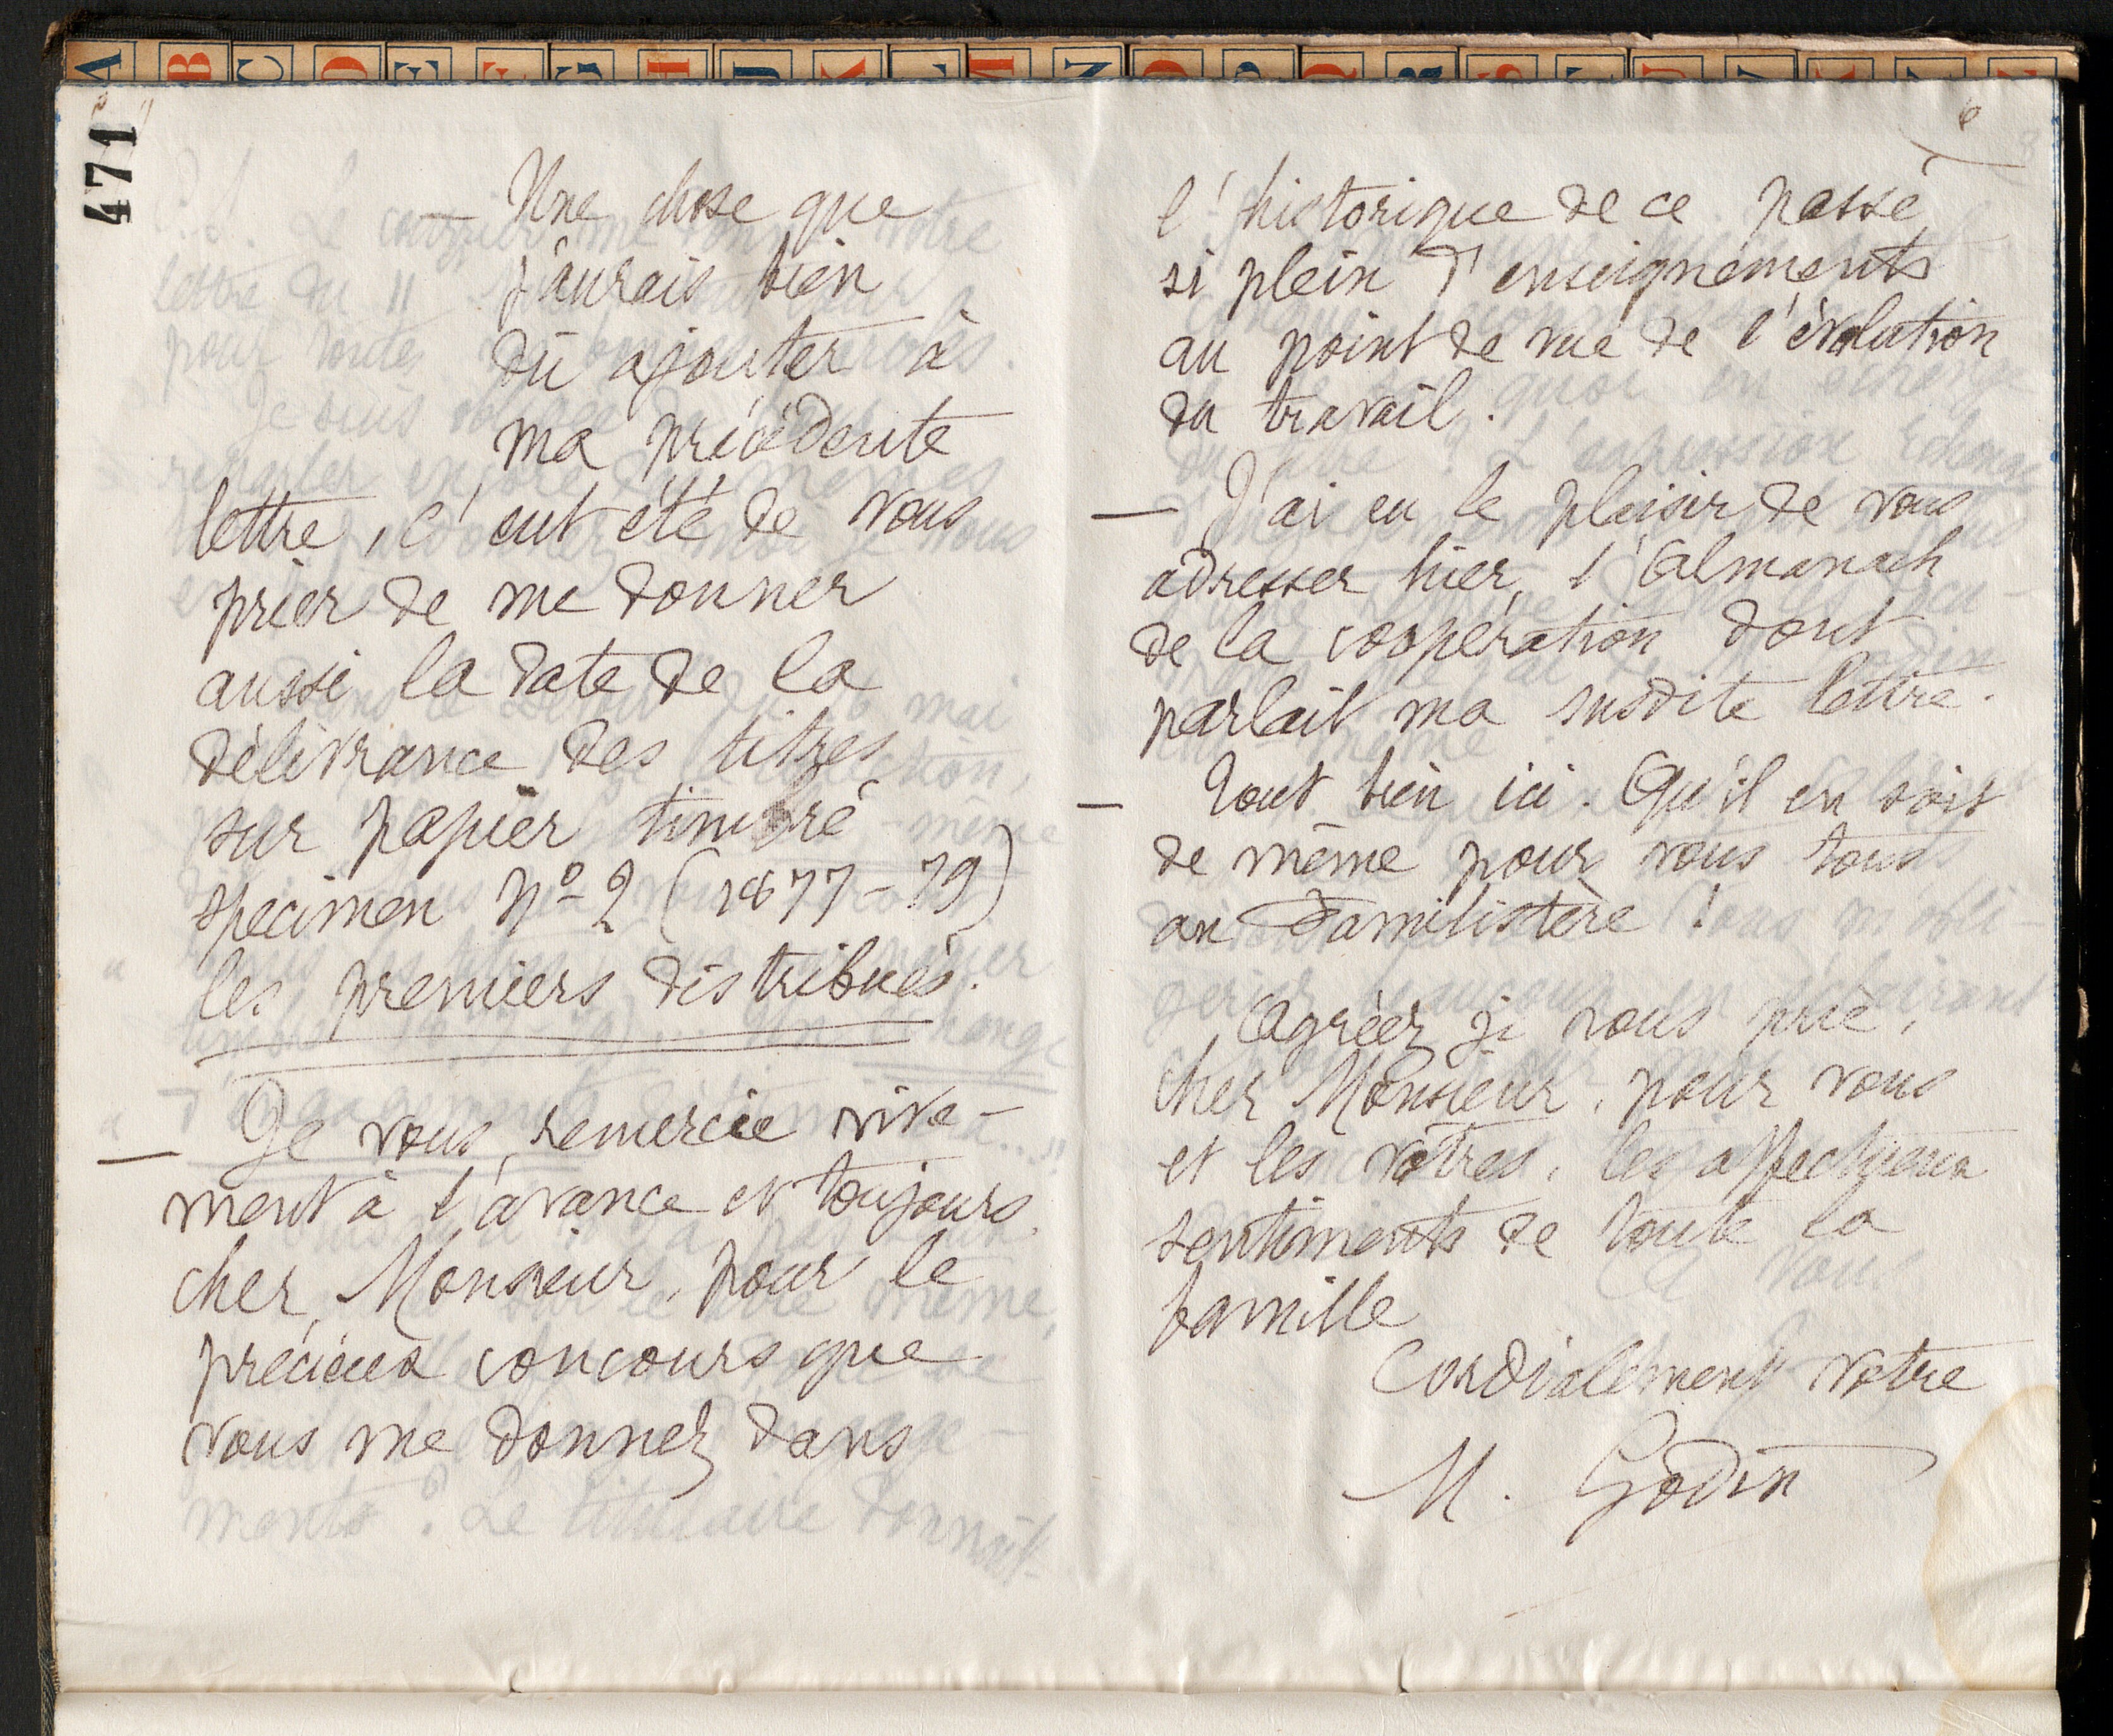 A B C D E F G H I J K L M N O P Q R S T U V
471
6
— Une chose que
j'aurais bien
dû ajouter à
ma précédente
lettre, c'eut été de vous
prier de me donner
aussi la date de la
délivrance des titres
sur papier timbré
specimen No 2 (1877-79)
les premiers distribués.
— Je vous remercie vive-
ment à l'avance et toujours
cher Monsieur, pour le
précieux concours que
vous me donnez dans
l'historique de ce passé
si plein d'enseignements
au point de vue de l'évolution
du travail.
— J'ai eu le plaisir de vous
adresser hier, l'Almanach
de la coopération dont
parlait ma susdite lettre.
— Tout bien ici. Qu'il en soit
de même pour vous tous
au Familistère !
Agréez je vous prie,
cher Monsieur, pour vous
et les vôtres, les affectueux
sentiments de toute la
famille
Cordialement vôtre
M. Godin